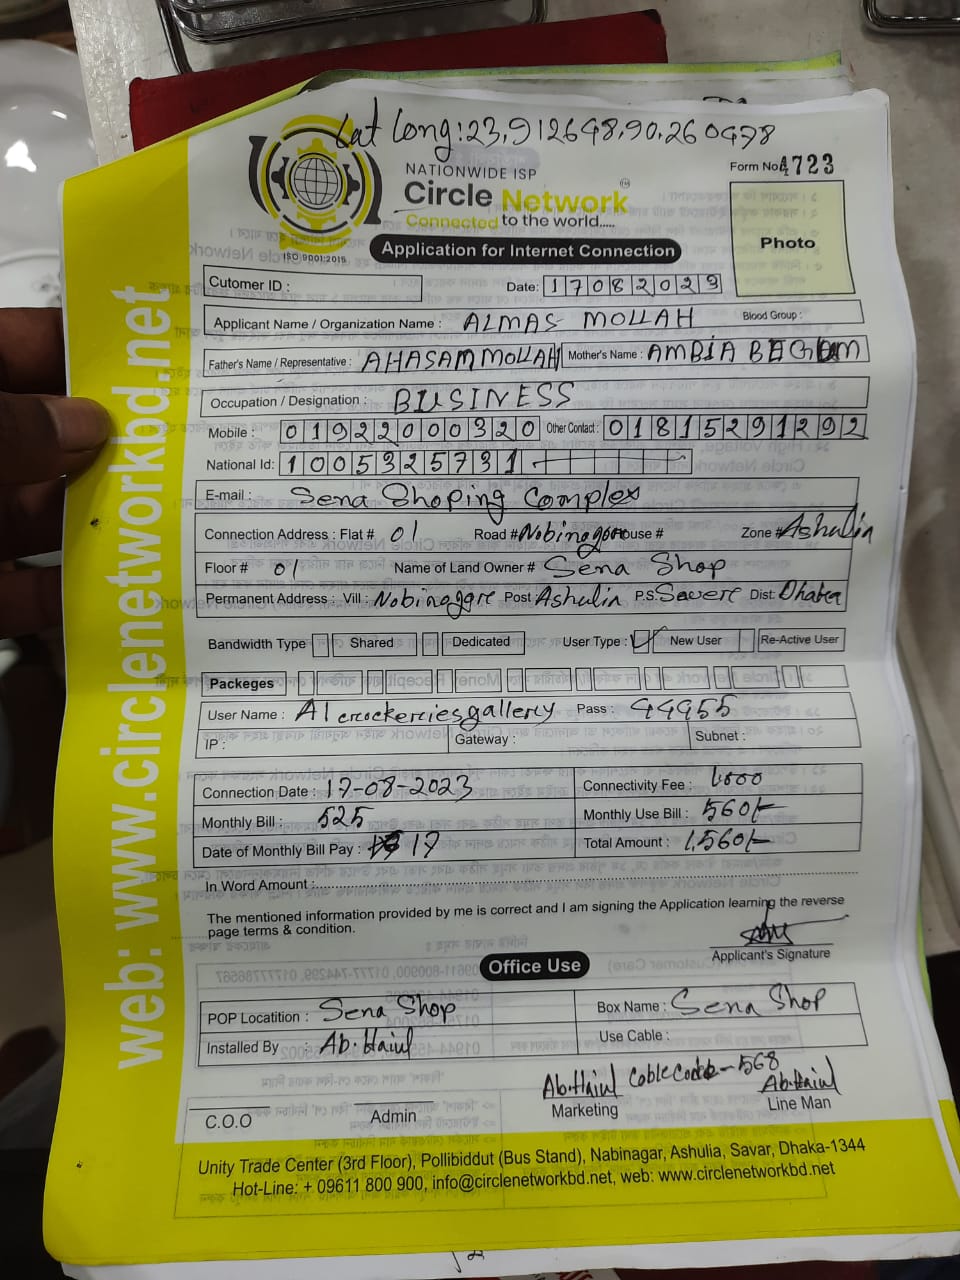 Lat Long: 23.912648, 90.260478
NATIONWIDE ISP
Circle Network
Connected to the world.....
ISO 9001:2015
Form No 4723
Photo
Application for Internet Connection
Cutomer ID :
Date: 17082023
Applicant Name / Organization Name : ALMAS MOLLAH Blood Group :
Father's Name / Representative : AHASAM MOLLAH Mother's Name : AMBIA BEGUM
Occupation / Designation : BUSINESS
Mobile : 01922000320 Other Contact : 01815291292
National Id: 1005325731
E-mail : Sena Shoping Complex
Connection Address : Flat # 01 Road # Nobinagor House # Zone # Ashulia
Floor # 01 Name of Land Owner # Sena Shop
Permanent Address : Vill : Nobinaggre Post Ashulia P.S: Savere Dist: Dhaka
Bandwidth Type Shared Dedicated User Type : New User Re-Active User
Packeges
User Name : Al crockerriesgallery Pass : 44955
IP : Gateway : Subnet :
Connection Date : 17-08-2023 Connectivity Fee : 1000
Monthly Bill : 525 Monthly Use Bill : 560/-
Date of Monthly Bill Pay : 17 Total Amount : 1,560/-
In Word Amount :
The mentioned information provided by me is correct and I am signing the Application learning the reverse
page terms & condition.
Applicant's Signature
Office Use
POP Locatition : Sena Shop Box Name : Sena Shop
Installed By : Ab. Haiul Use Cable :
Ab. Haiul Cable Code - 568 Ab. Haiul
C.O.O Admin Marketing Line Man
Unity Trade Center (3rd Floor), Pollibiddut (Bus Stand), Nabinagar, Ashulia, Savar, Dhaka-1344
Hot-Line: + 09611 800 900, info@circlenetworkbd.net, web: www.circlenetworkbd.net
web: www.circlenetworkbd.net